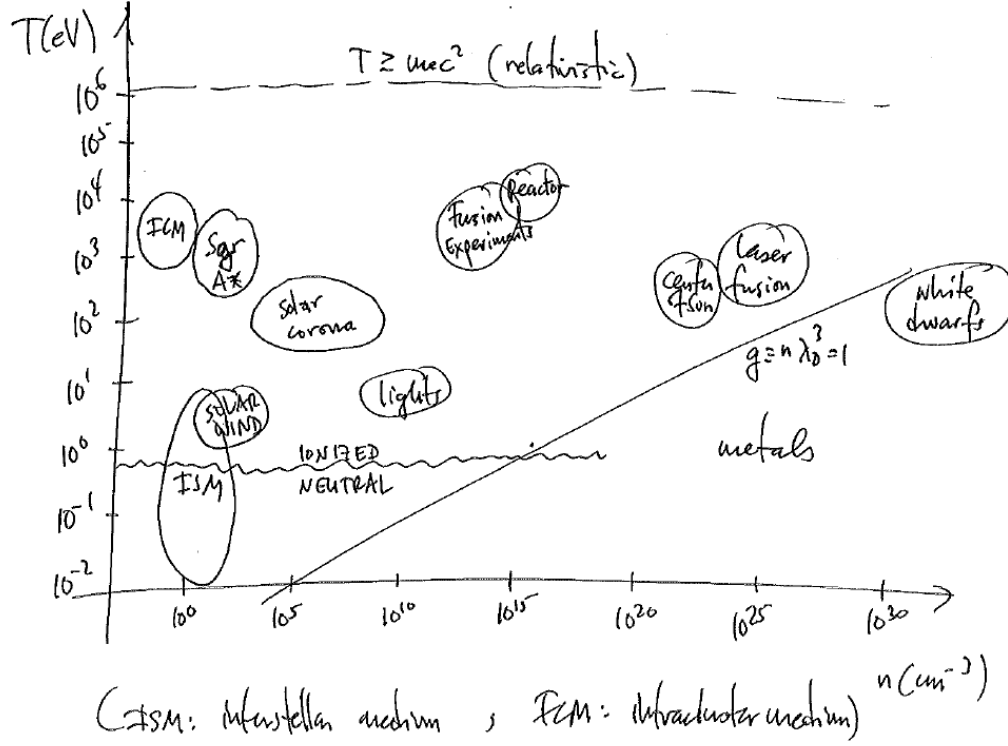 T(eV)
T ≳ mec² (relativistic)
10⁶
10⁵
10⁴
10³
10²
10¹
10⁰
10⁻¹
10⁻²
ICM
Sgr
A*
Solar
corona
Fusion
Experiments
Reactor
Center
of sun
laser
fusion
white
dwarfs
g ≡ n λ_D³ = 1
SOLAR
WIND
lights
IONIZED
NEUTRAL
ISM
metals
10⁰ 10⁵ 10¹⁰ 10¹⁵ 10²⁰ 10²⁵ 10³⁰
n(cm⁻³)
(ISM: interstellar medium , ICM: intracluster medium)